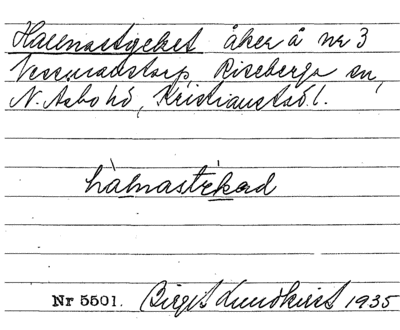 Hallnastycket åker å nr 3
Vessmantorp, Riseberga sn,
N. Åsbo hd, Kristianstads l.
hàlnastỳkəd
Nr 5501. Birgit Lundkvist 1935